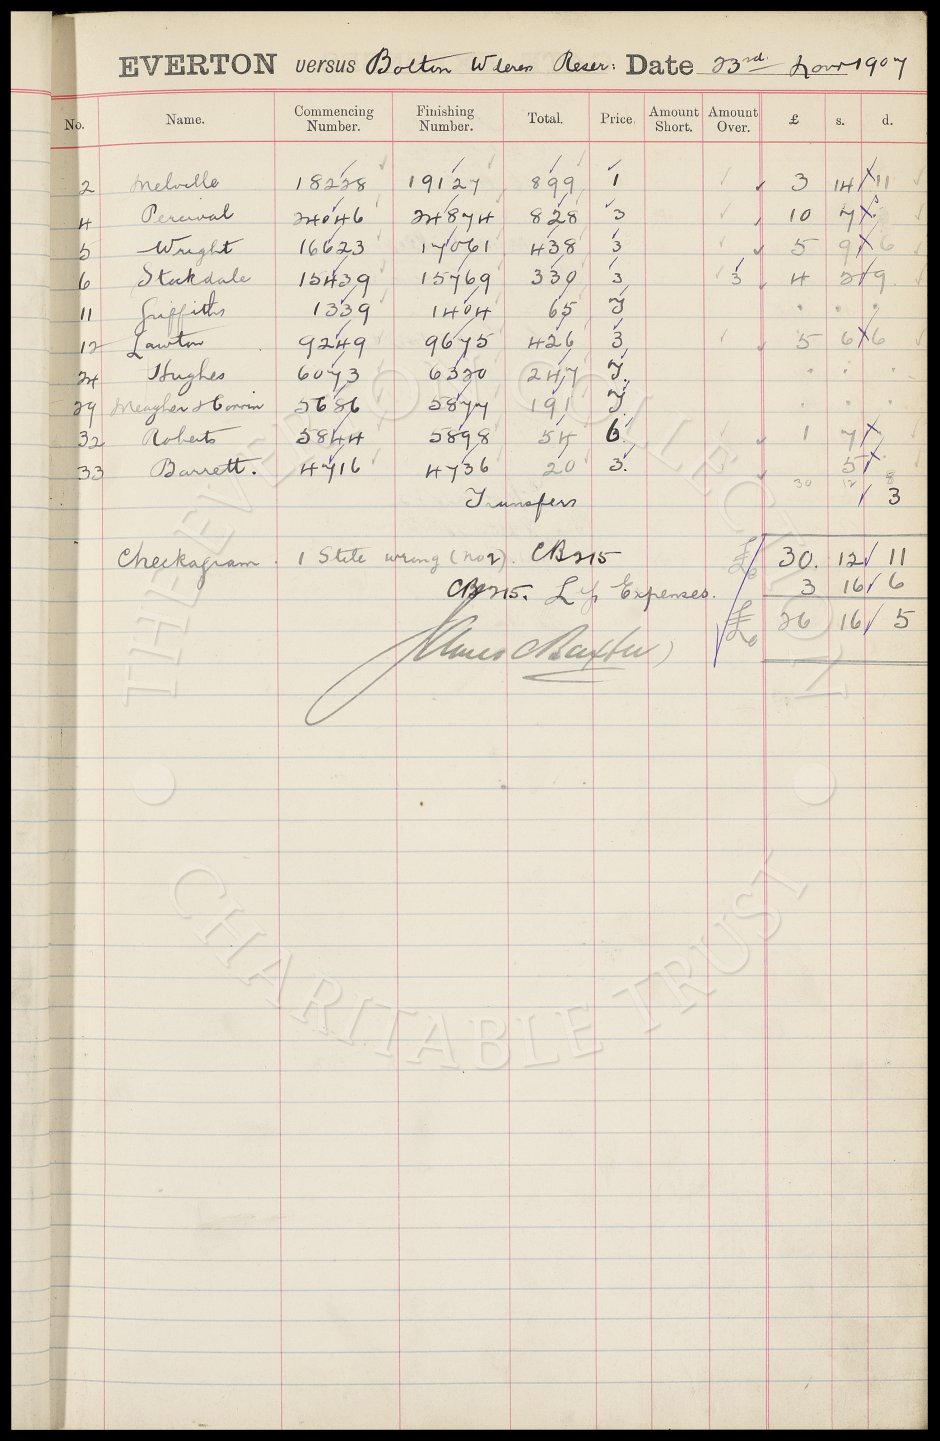 EVERTON versus Bolton Wderes Reser: Date 23rd Novr 1907
No. Name. Commencing Number. Finishing Number. Total. Price. Amount Short. Amount Over. £ s. d.
2 Melville 18228 19127 899 1 3 14 11
4 Percival 24046 24874 828 3 10 7
5 Wright 16623 17061 438 3 5 9 6
6 Stockdale 15439 15769 330 3 3 4 2 9
11 Griffiths 1339 1404 65 T
12 Lawton 9249 9675 426 3 5 6 6
24 Hughes 6073 6320 247 T.
29 Meagher & Corrin 5686 5877 191 T
32 Roberts 5844 5898 54 6 1 7
33 Barrett. 4716 4736 20 3. 5
30 12 8
Transfers 3
Checkagram. 1 State wrong (No 2). CB 215 £ 30. 12 11
CB 215. L/p Expenses. 3 16 6
£ 26 16 5
James Baxter
THE EVERTON COLLECTION
CHARITABLE TRUST